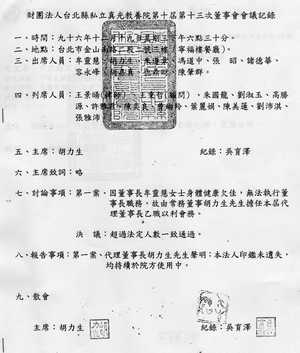 財團法人台北縣私立真光教養院第十屆第十三次董事會會議記錄
一、時間：九十六年十二月十九日星期三下午六點三十分。
二、地點：台北市金山南路二段二號三樓（寧福樓餐廳）。
三、出席人員：牟靈慧、胡力生、朱
馮道中、張 昭、諸德華、
容永峰、楊嘉
陳肇群。
四、列席人員：王景暘(律師)、王
(顧問)、朱國龍、劉淑玉、高勝
源、許雅
陳炎良、
葉麗娟、陳美蓮、劉沛淇、
張雅沛
五、主席：胡力生
紀錄：吳育澤
六、主席致詞：略
七、討論事項：第一案、因董事長牟靈慧女士身體健康欠佳，無法執行董
事長職務，故由常務董事胡力生先生擔任本屆代
理董事長乙職以利會務。
決 議：超過法定人數一致通過。
八、報告事項：第一案、代理董事長胡力生先生聲明：本法人印鑑未遺失，
均持續於院方使用中。
九、散會
主席：胡力生
紀錄：吳育澤